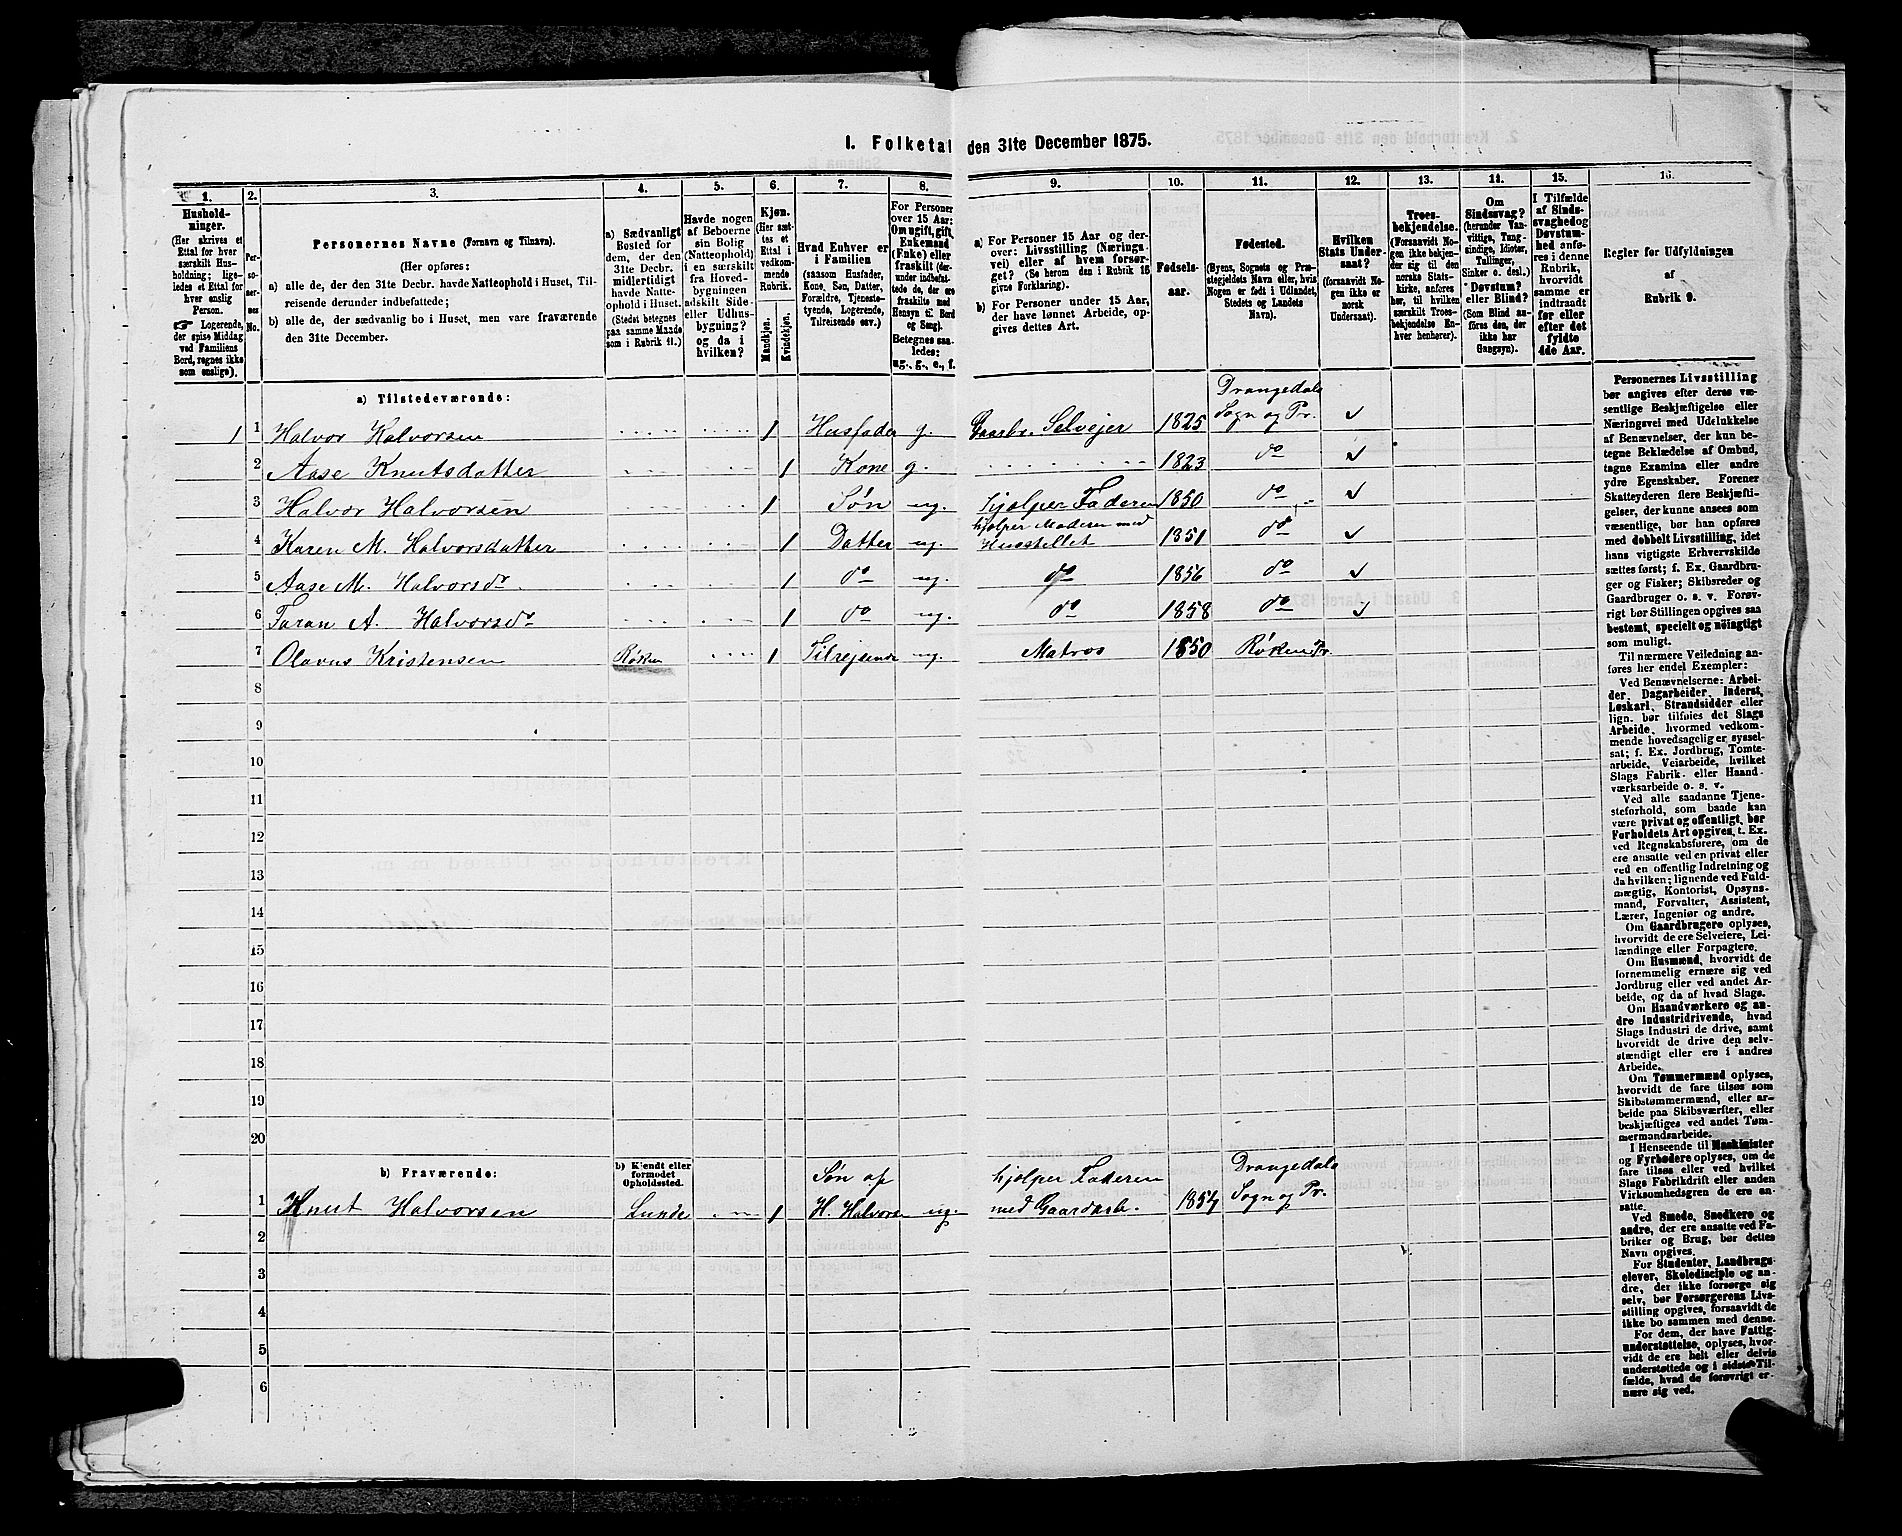 1. Folketal den 31te December 1875.
1. 2. 3. 4. 5. 6. 7. 8. 9. 10. 11. 12. 13. 14. 15. 16.
Hushold-
ninger.
(Her skrives et
Ettal for hver
særskilt Hus-
holdning; lige-
ledes et Ettal for
hver enslig
Person.
☞ Logerende,
der spise Middag
ved Familiens
Bord, regnes ikke
som enslige).
Per-
so-
ner-
nes
No.
Personernes Navne (Fornavn og Tilnavn).
(Her opføres:
a) alle de, der den 31te Decbr. havde Natteophold i Huset, Til-
reisende derunder indbefattede;
b) alle de, der sædvanlig bo i Huset, men vare fraværende
den 31te December.
a) Sædvanligt
Bosted for
dem, der den
31te Decbr.
midlertidigt
havde Natte-
ophold i Huset.
(Stedet betegnes
paa samme Maade
som i Rubrik 11.)
Havde nogen
af Beboerne
sin Bolig
(Natteophold)
i en særskilt
fra Hoved-
bygningen
adskilt Side-
eller Udhus-
bygning?
og da i
hvilken?
Kjøn.
(Her sæt-
tes et
Ettal i
vedkom-
mende
Rubrik.
Mandkjøn.
Kvindekjøn.
Hvad Enhver er
i Familien
(saasom Husfader,
Kone, Søn, Datter,
Forældre, Tjeneste-
tyende, Logerende,
Tilreisende osv.)
For Personer
over 15 Aar:
Om ugift, gift,
Enkemand
(Enke) eller
fraskilt (der-
under indbefat-
tede de, der ere
fraskilte med
Hensyn til Bord
og Seng).
Betegnes saa-
ledes:
ug., g., e., f.
a) For Personer 15 Aar og der-
over: Livsstilling (Nærings-
vei) eller af hvem forsør-
get? (Se herom den i Rubrik 16
givne Forklaring).
b) For Personer under 15 Aar,
der have lønnet Arbeide, op-
gives dettes Art.
Fødsels-
aar.
Fødested.
(Byens, Sognets og Præ-
stegjeldets Navn eller, hvis
Nogen er født i Udlandet,
Stedets og Landets
Navn).
Hvilken
Stats Under-
saat?
(forsaavidt No-
gen ikke er
norsk
Undersaat).
Troes-
bekjendelse.
(Forsaavidt No-
gen ikke bekjen-
der sig til den
norske Stats-
kirke, anføres
her, til hvilken
særskilt Troes-
bekjendelse En-
hver henhører).
Om
Sindssvag?
(herunder Van-
vittige, Tung-
sindige, Idioter,
Tullinger,
Sinker o. desl.)
Døvstum?
eller Blind?
(Som Blind an-
føres den, der
ikke har
Gangsyn).
I Tilfælde
af Sinds-
svaghed og
Døvstum-
hed anfø-
res i denne
Rubrik,
hvorvidt
samme er
indtraadt
før eller
efter det
fyldte
4de Aar.
Regler for Udfyldningen
af
Rubrik 9.
a) Tilstedeværende:
1 1 Halvor Halvorsen 1 Husfader g. Gaardbr. Selvejer 1825 Drangedals Sogn og Pr. ✓
2 Aase Knutsdatter 1 Kone g. 1823 do ✓
3 Halvor Halvorsen 1 Søn ug. hjælper Faderen 1850 do ✓
4 Karen M. Halvorsdatter 1 Datter ug. hjælper Moderen med Husstellet 1851 do ✓
5 Aase M. Halvorsdr 1 do ug. do 1856 do ✓
6 Taran A. Halvorsdr 1 do ug. do 1858 do ✓
7 Olavus Kristensen Røken 1 Tilrejsende ug. Matros 1850 Røken Pr.
8
9
10
11
12
13
14
15
16
17
18
19
20
b) Fraværende:
b) Kjendt eller
formodet
Opholdssted.
1 Knut Halvorsen Lunde 1 Søn af H. Halvors. ug. hjælper Faderen med Gaardarb. 1854 Drangedals Sogn og Pr.
2
3
4
5
6
Personernes Livsstilling
bør angives efter deres væ-
sentlige Beskjæftigelse eller
Næringsvei med Udelukkelse
af Benævnelser, der kun be-
tegne Beklædelse af Ombud,
tagne Examina eller andre
ydre Egenskaber. Forener
Skatteyderen flere Beskjæfti-
gelser, der kunne ansees som
væsentlige, bør han opføres
med dobbelt Livsstilling, idet
hans vigtigste Erhvervskilde
sættes først; f. Ex. Gaardbru-
ger og Fisker; Skibsreder og
Gaardbruger o. s. v. Forøv-
rigt bør Stillingen opgives saa
bestemt, specielt og nøiagtigt
som muligt.
Til nærmere Veiledning an-
føres her endel Exempler:
Ved Benævnelserne: Arbei-
der, Dagarbeider, Inderst,
Løskarl, Strandsidder eller
lign. bør tilføies det Slags
Arbeide, hvormed vedkom-
mende hovedsagelig er syssel-
sat; f. Ex. Jordbrug, Tomte-
arbeide, Veiarbeide, hvilket
Slags Fabrik- eller Haand-
værksarbeide o. s. v.
Ved alle saadanne Tjene-
steforhold, som baade kan
være privat og offentligt, bør
Forholdets Art opgives, t. Ex.
ved Regnskabsførere, om de
ere ansatte ved en privat eller
ved en offentlig Indretning og
da hvilken; lignende ved Fuld-
mægtig, Kontorist, Opsyns-
mand, Forvalter, Assistent,
Lærer, Ingeniør og andre.
Om Gaardbrugere oplyses,
hvorvidt de ere Selveiere, Lei-
lændinge eller Forpagtere.
Om Husmænd, hvorvidt de
fornemmelig ernære sig ved
Jordbrug eller ved andet Ar-
beide, og da af hvad Slags.
Om Haandværkere og an-
dre Industridrivende, hvad
Slags Industri de drive, samt
hvorvidt de drive den selv-
stændigt eller ere i andres
Arbeide.
Om Tømmermænd oplyses,
hvorvidt de fare tilsøs som
Skibstømmermænd, eller ar-
beide paa Skibsværfter, eller
beskjæftiges ved andet Tøm-
mermandsarbeide.
I Henseende til Maskinister
og Fyrbødere oplyses, om de
fare tilsøs eller ved hvilket
Slags Fabrikdrift eller anden
Virksomhedsgren de ere an-
satte.
Ved Smede, Snedkere og
andre, der ere ansatte ved Fa-
briker og Brug, bør dettes
Navn opgives.
For Studenter, Landbrugs-
elever, Skoledisciple og an-
dre, der ikke forsørge sig
selv, bør Forsørgerens Livs-
stilling opgives, forsaavidt de
ikke bo sammen med denne.
For dem, der have Fattig-
understøttelse, oplyses, hvor-
vidt de ere helt eller delvis
understøttede og i sidste Til-
fælde, hvad de forøvrigt er-
nære sig ved.